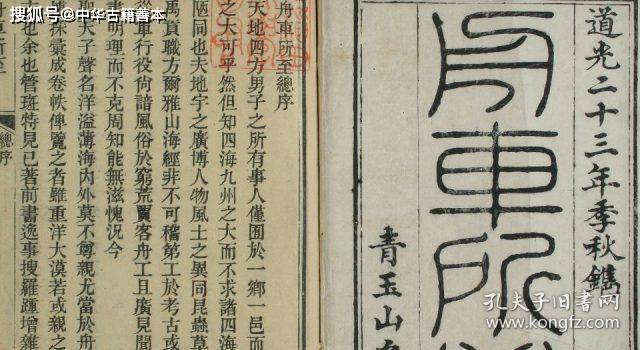 搜狐号@中华古籍善本
道光二十三年季秋鐫
舟車所
青玉山
舟車所至總序
天地四方男子之所有事人僅囿於一鄉一邑而
之大可乎然但知四海九州之大而不求諸四海
陋同也夫地宇之廣博人物風土之異同昆蟲草
禹貢職方爾雅山海經非不可稽第工於考古或
車行役尙諳風俗於窮荒賈客舟工且廣見聞
明理而不克周知能無滋愧況今
天子聲名洋溢薄海內外莫不尊親尤當於舟
採彙成卷帙俾覽之者雖重洋大漠若或親之
也余也管斑特見已著前書逸事搜羅踵增雜
總序
孔夫子旧书网
www.kongfz.com